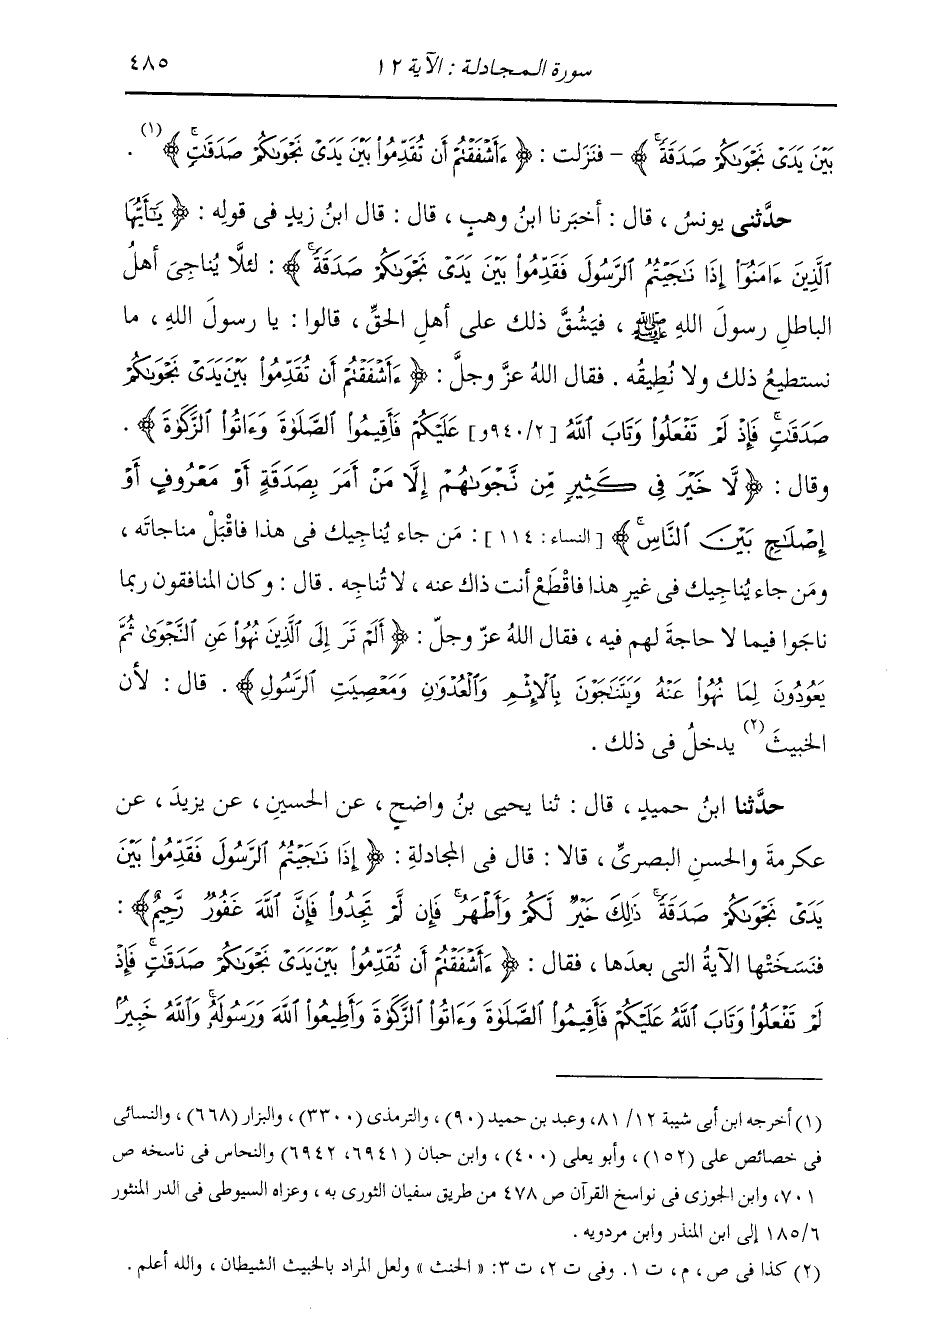 سورة المجادلة : الآية ١٢ ٤٨٥
بَيْنَ يَدَىْ نَجْوَىٰكُمْ صَدَقَةً ۚ ﴾ – فنَزَلت : ﴿ ءَأَشْفَقْتُمْ أَن تُقَدِّمُوا۟ بَيْنَ يَدَىْ نَجْوَىٰكُمْ صَدَقَـٰتٍ ۚ ﴾ (١) .
حدَّثنى يونسُ ، قال : أخبرَنا ابنُ وهبٍ ، قال : قال ابنُ زيدٍ فى قولِه : ﴿ يَـٰٓأَيُّهَا
ٱلَّذِينَ ءَامَنُوٓا۟ إِذَا نَـٰجَيْتُمُ ٱلرَّسُولَ فَقَدِّمُوا۟ بَيْنَ يَدَىْ نَجْوَىٰكُمْ صَدَقَةً ۚ ﴾ : لئلَّا يُناجِىَ أهلُ
الباطلِ رسولَ اللهِ ﷺ ، فيَشُقَّ ذلك على أهلِ الحقِّ ، قالوا : يا رسولَ اللهِ ، ما
نستطيعُ ذلك ولا نُطِيقُه . فقال اللهُ عزَّ وجلَّ : ﴿ ءَأَشْفَقْتُمْ أَن تُقَدِّمُوا۟ بَيْنَ يَدَىْ نَجْوَىٰكُمْ
صَدَقَـٰتٍ ۚ فَإِذْ لَمْ تَفْعَلُوا۟ وَتَابَ ٱللَّهُ [ ٩٤٠/٢و ] عَلَيْكُمْ فَأَقِيمُوا۟ ٱلصَّلَوٰةَ وَءَاتُوا۟ ٱلزَّكَوٰةَ ﴾ .
وقال : ﴿ لَّا خَيْرَ فِى كَثِيرٍ مِّن نَّجْوَىٰهُمْ إِلَّا مَنْ أَمَرَ بِصَدَقَةٍ أَوْ مَعْرُوفٍ أَوْ
إِصْلَـٰحٍۭ بَيْنَ ٱلنَّاسِ ۚ ﴾ [ النساء : ١١٤ ] : مَن جاء يُناجيك فى هذا فاقْبَلْ مناجاتَه ،
ومَن جاء يُناجيك فى غيرِ هذا فاقْطَعْ أنت ذاك عنه ، لا تُناجِه . قال : وكان المنافقون ربما
ناجَوا فيما لا حاجةَ لهم فيه ، فقال اللهُ عزّ وجلّ : ﴿ أَلَمْ تَرَ إِلَى ٱلَّذِينَ نُهُوا۟ عَنِ ٱلنَّجْوَىٰ ثُمَّ
يَعُودُونَ لِمَا نُهُوا۟ عَنْهُ وَيَتَنَـٰجَوْنَ بِٱلْإِثْمِ وَٱلْعُدْوَٰنِ وَمَعْصِيَتِ ٱلرَّسُولِ ﴾ . قال : لأن
الخبيثَ (٢) يدخلُ فى ذلك .
حدَّثنا ابنُ حميدٍ ، قال : ثنا يحيى بنُ واضحٍ ، عن الحسينِ ، عن يزيدَ ، عن
عكرمةَ والحسنِ البصرىِّ ، قالا : قال فى المجادلةِ : ﴿ إِذَا نَـٰجَيْتُمُ ٱلرَّسُولَ فَقَدِّمُوا۟ بَيْنَ
يَدَىْ نَجْوَىٰكُمْ صَدَقَةً ۚ ذَٰلِكَ خَيْرٌ لَّكُمْ وَأَطْهَرُ ۚ فَإِن لَّمْ تَجِدُوا۟ فَإِنَّ ٱللَّهَ غَفُورٌ رَّحِيمٌ ﴾ :
فنَسَخَتْها الآيةُ التى بعدَها ، فقال : ﴿ ءَأَشْفَقْتُمْ أَن تُقَدِّمُوا۟ بَيْنَ يَدَىْ نَجْوَىٰكُمْ صَدَقَـٰتٍ ۚ فَإِذْ
لَمْ تَفْعَلُوا۟ وَتَابَ ٱللَّهُ عَلَيْكُمْ فَأَقِيمُوا۟ ٱلصَّلَوٰةَ وَءَاتُوا۟ ٱلزَّكَوٰةَ وَأَطِيعُوا۟ ٱللَّهَ وَرَسُولَهُۥ ۚ وَٱللَّهُ خَبِيرٌۢ
(١) أخرجه ابن أبى شيبة ١٢/ ٨١، وعبد بن حميد (٩٠) ، والترمذى (٣٣٠٠) ، والبزار (٦٦٨) ، والنسائى
فى خصائص على (١٥٢) ، وأبو يعلى (٤٠٠) ، وابن حبان (٦٩٤١، ٦٩٤٢) والنحاس فى ناسخه ص
٧٠١، وابن الجوزى فى نواسخ القرآن ص ٤٧٨ من طريق سفيان الثورى به ، وعزاه السيوطى فى الدر المنثور
١٨٥/٦ إلى ابن المنذر وابن مردويه .
(٢) كذا فى ص ، م ، ت ١. وفى ت ٢، ت ٣: « الحنث » ولعل المراد بالخبيث الشيطان ، والله أعلم .